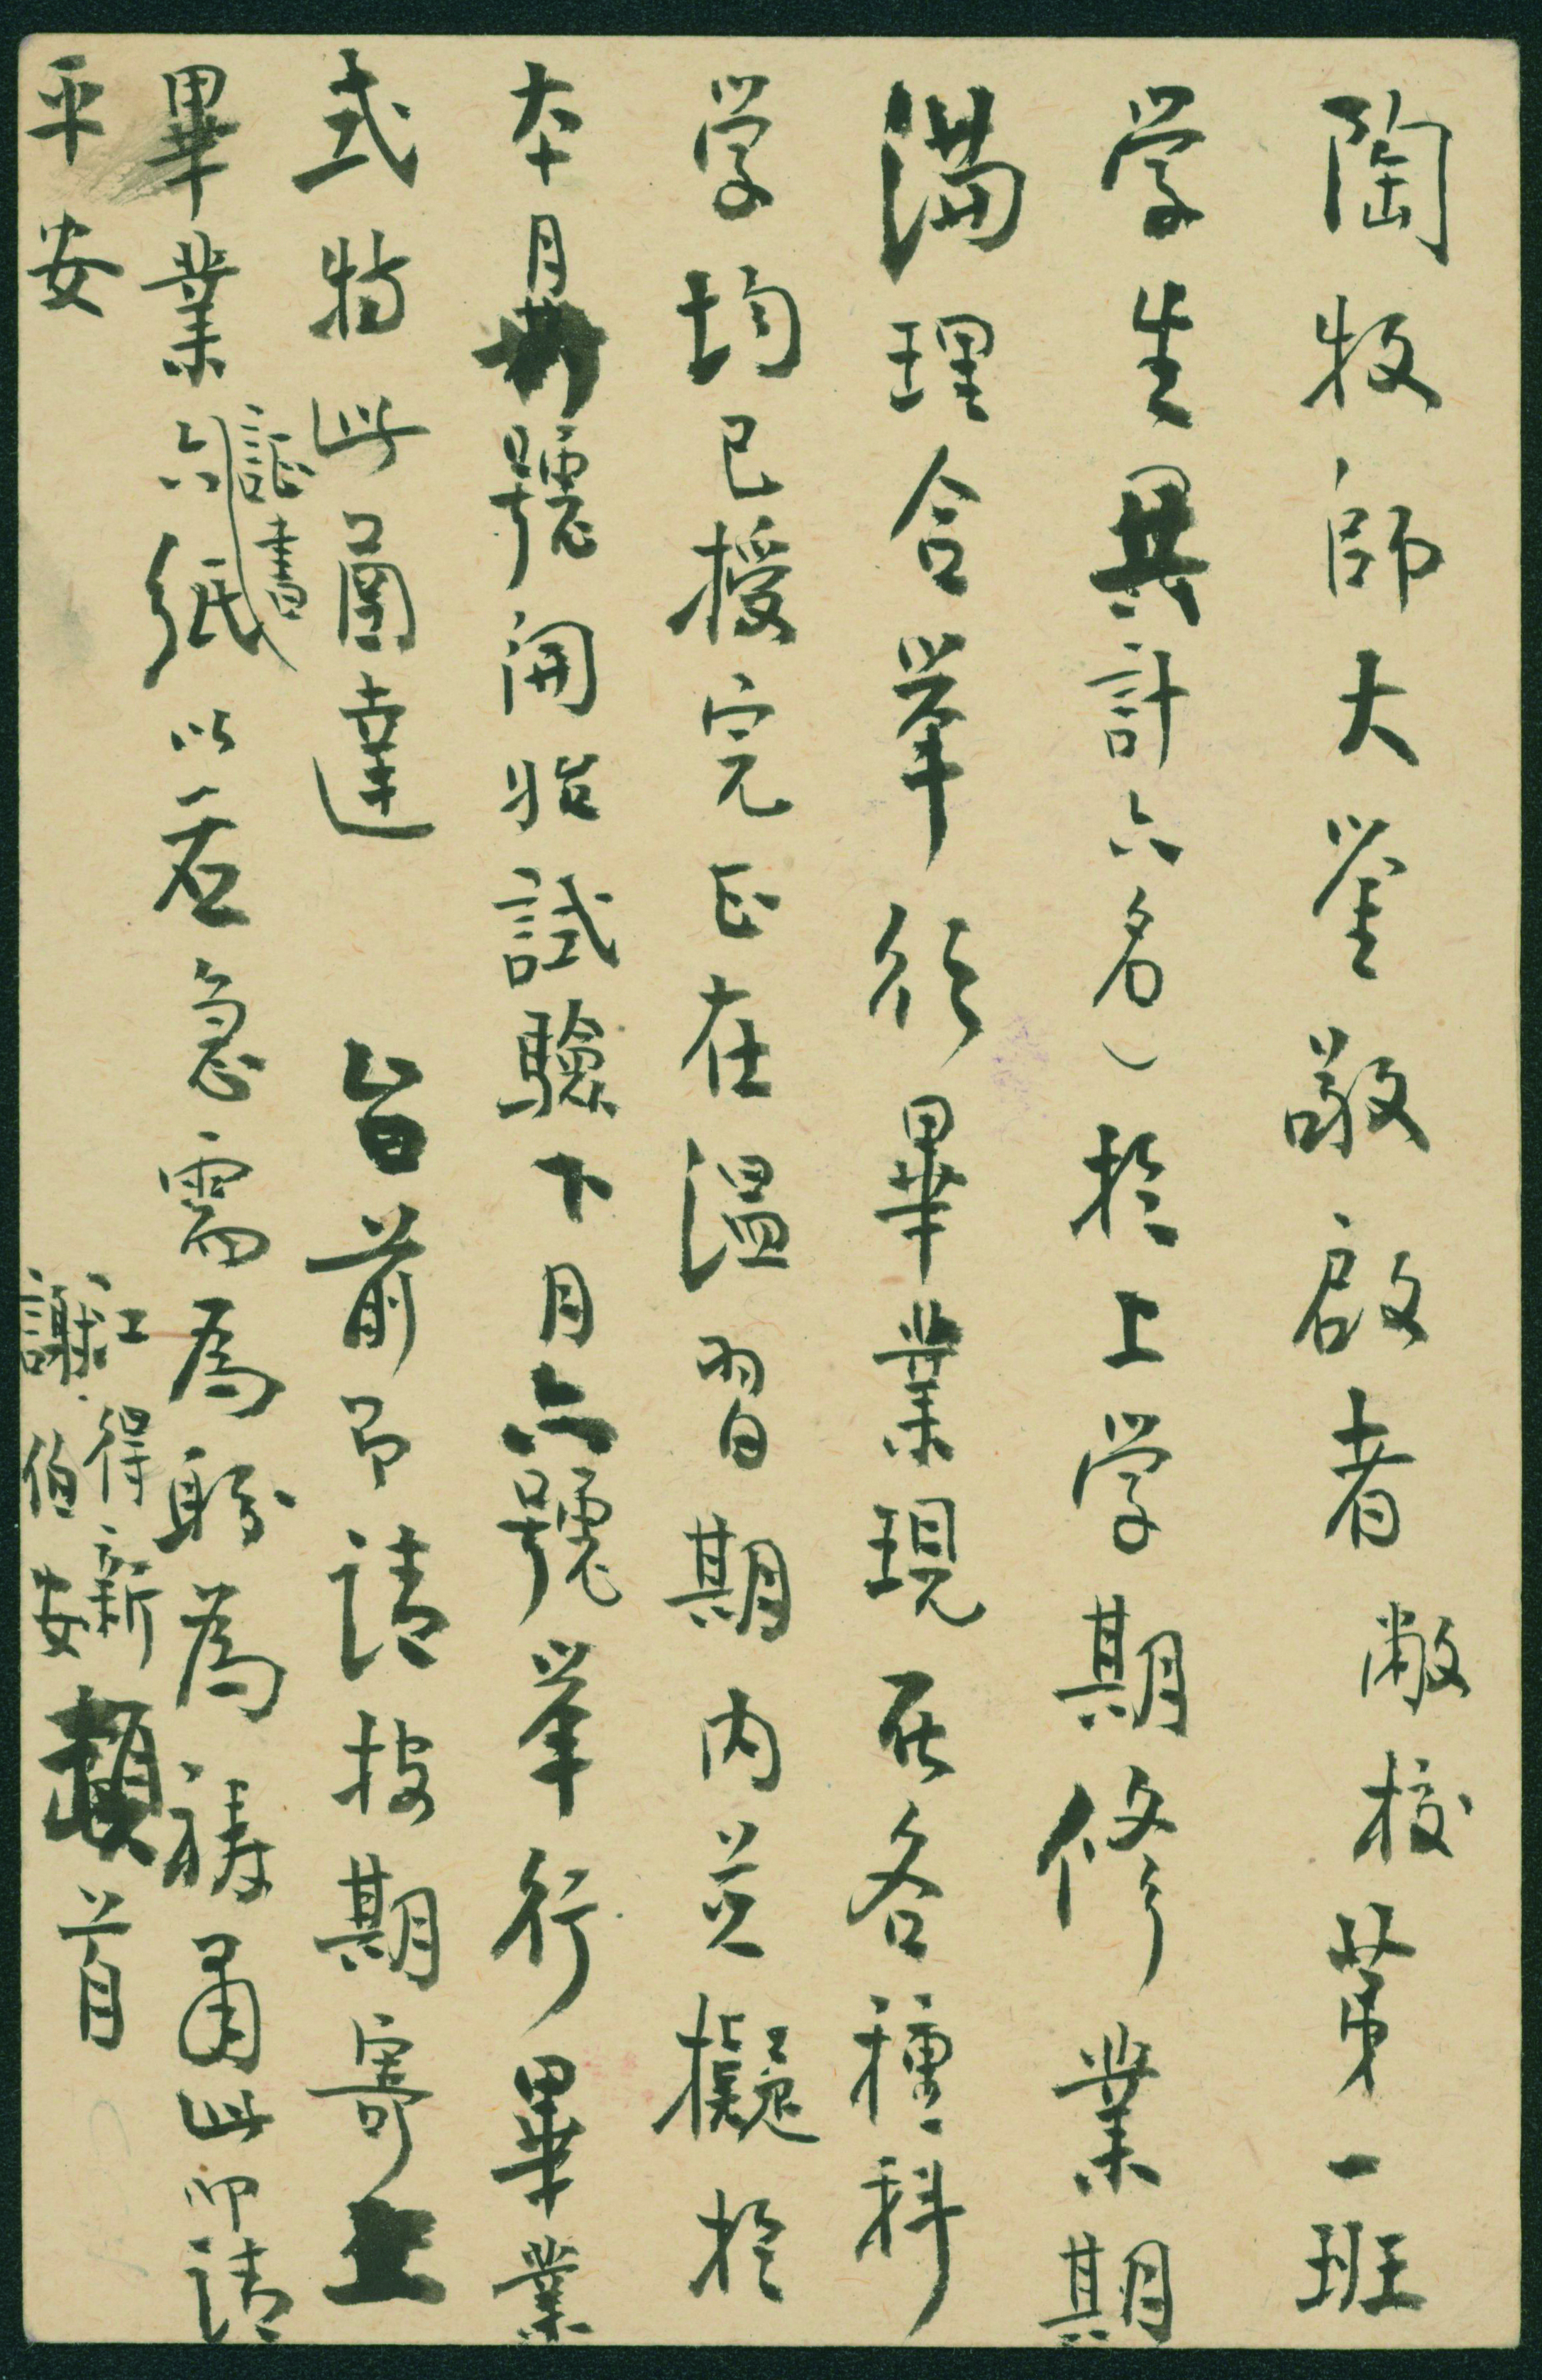 陶牧師大鑒敬啟者敝校第一班
学生異計六名）於上学期修業期
満理合举行畢業現在各種科
学均已授完正在温習期内並擬於
本月號開始試驗下月六號举行畢業
式特此函達 旨前予請按期寄上
畢業證書六紙以若急需為盼為禱肅此即請
平安
江得新
謝伯安
頓首